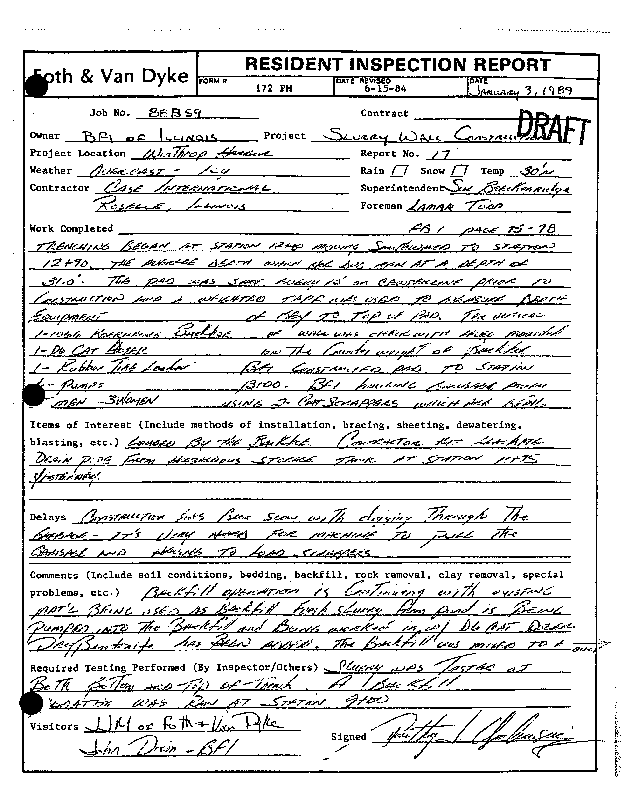 Foth & Van Dyke
RESIDENT INSPECTION REPORT
FORM # 172 PH
DATE REVISED 6-15-84
DATE JANUARY 3, 1989
Job No. 88B59 Contract
DRAFT
Owner BFI OF ILLINOIS Project SLURRY WALL CONSTRUCTION
Project Location WINTHROP HARBOR Report No. 17
Weather OVERCAST - ICY Rain Snow Temp 30's
Contractor CASE INTERNATIONAL Superintendent
ROSELLE, ILLINOIS Foreman LAMAR TODD
Work Completed FB 1 PAGE 75-78
TRENCHING BEGAN AT STATION 12+60 MOVING TO STATION
12+90. THE AVERAGE DEPTH WHEN DUG RAN AT A DEPTH OF
31.0'. THE PAD WAS ON CENTERLINE PRIOR TO
CONSTRUCTION AND A WEIGHTED TAPE WAS USED TO MEASURE DEPTH
EQUIPMENT OF KEY TO TOP OF PAD. THE VERTICAL
1- Backhoe OF WALL WAS CHECK WITH
1-D6 CAT DOZER ON THE COUNTER WEIGHT OF BACKHOE
1- Rubber Tire Loader BFI CONSTRUCTED PAD TO STATION
PUMPS BFI
MEN - 3 WOMEN USING 2- CAT SCRAPPERS WHICH ARE BEING
Items of Interest (Include methods of installation, bracing, sheeting, dewatering,
blasting, etc.) LOADED BY THE BACKHOE CONTRACTOR
DRAIN PIPE FROM STORAGE TANK AT STATION
YESTERDAY.
Delays CONSTRUCTION HAS BEEN SLOW WITH digging Through The
GARBAGE - IT'S VERY HARD FOR MACHINE TO PULL THE
GARBAGE AND HAVING TO LOAD SCRAPPERS
Comments (Include soil conditions, bedding, backfill, rock removal, clay removal, special
problems, etc.) BACKFILL OPERATION IS CONTINUING WITH EXISTING
MAT'L BEING USED AS BACKFILL FRESH SLURRY FROM POND IS BEING
PUMPED INTO THE BACKFILL AND BEING WORKED IN W/ D6 CAT DOZER
DRY BENTONITE HAS BEEN ADDED. THE BACKFILL WAS MIXED TO A
Required Testing Performed (By Inspector/Others) SLURRY WAS TESTED AT
BOTH BOTTOM AND TOP OF TRENCH. A 1 BACKFILL
WAS RAN AT STATION 9+00
Visitors JIM OF FOTH & VAN DYKE
John - BFI Signed